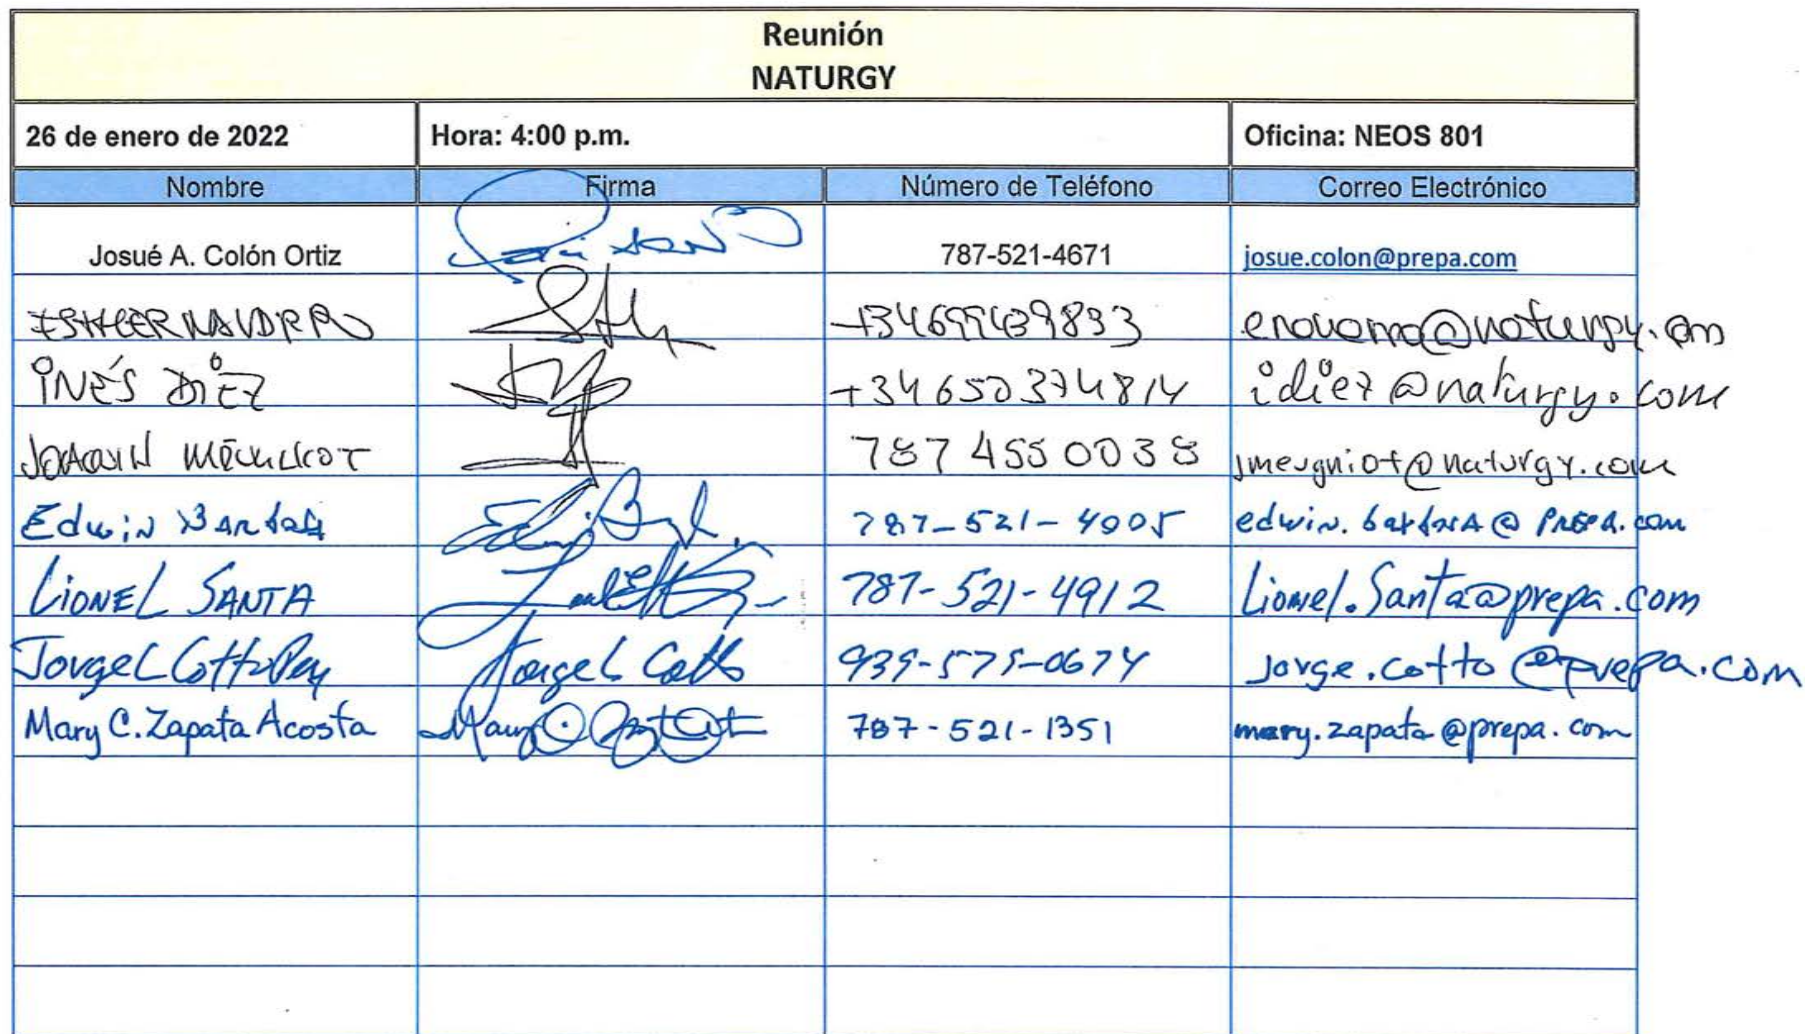 Reunión
NATURGY
26 de enero de 2022 Hora: 4:00 p.m. Oficina: NEOS 801
Nombre Firma Número de Teléfono Correo Electrónico
Josué A. Colón Ortiz 787-521-4671 josue.colon@prepa.com
@naturgy.com
INÉS DÍEZ +34650374814 idiez@naturgy.com
JOAQUIN 787 455 0038 @naturgy.com
Edwin 787-521-4005 edwin.barbosa@PREPA.com
LIONEL SANTA 787-521-4912 Lionel.Santa@prepa.com
Jorge L Cotto Jorge L Cotto 939-575-0674 jorge.cotto@prepa.com
Mary C. Zapata Acosta 787-521-1351 mary.zapata@prepa.com